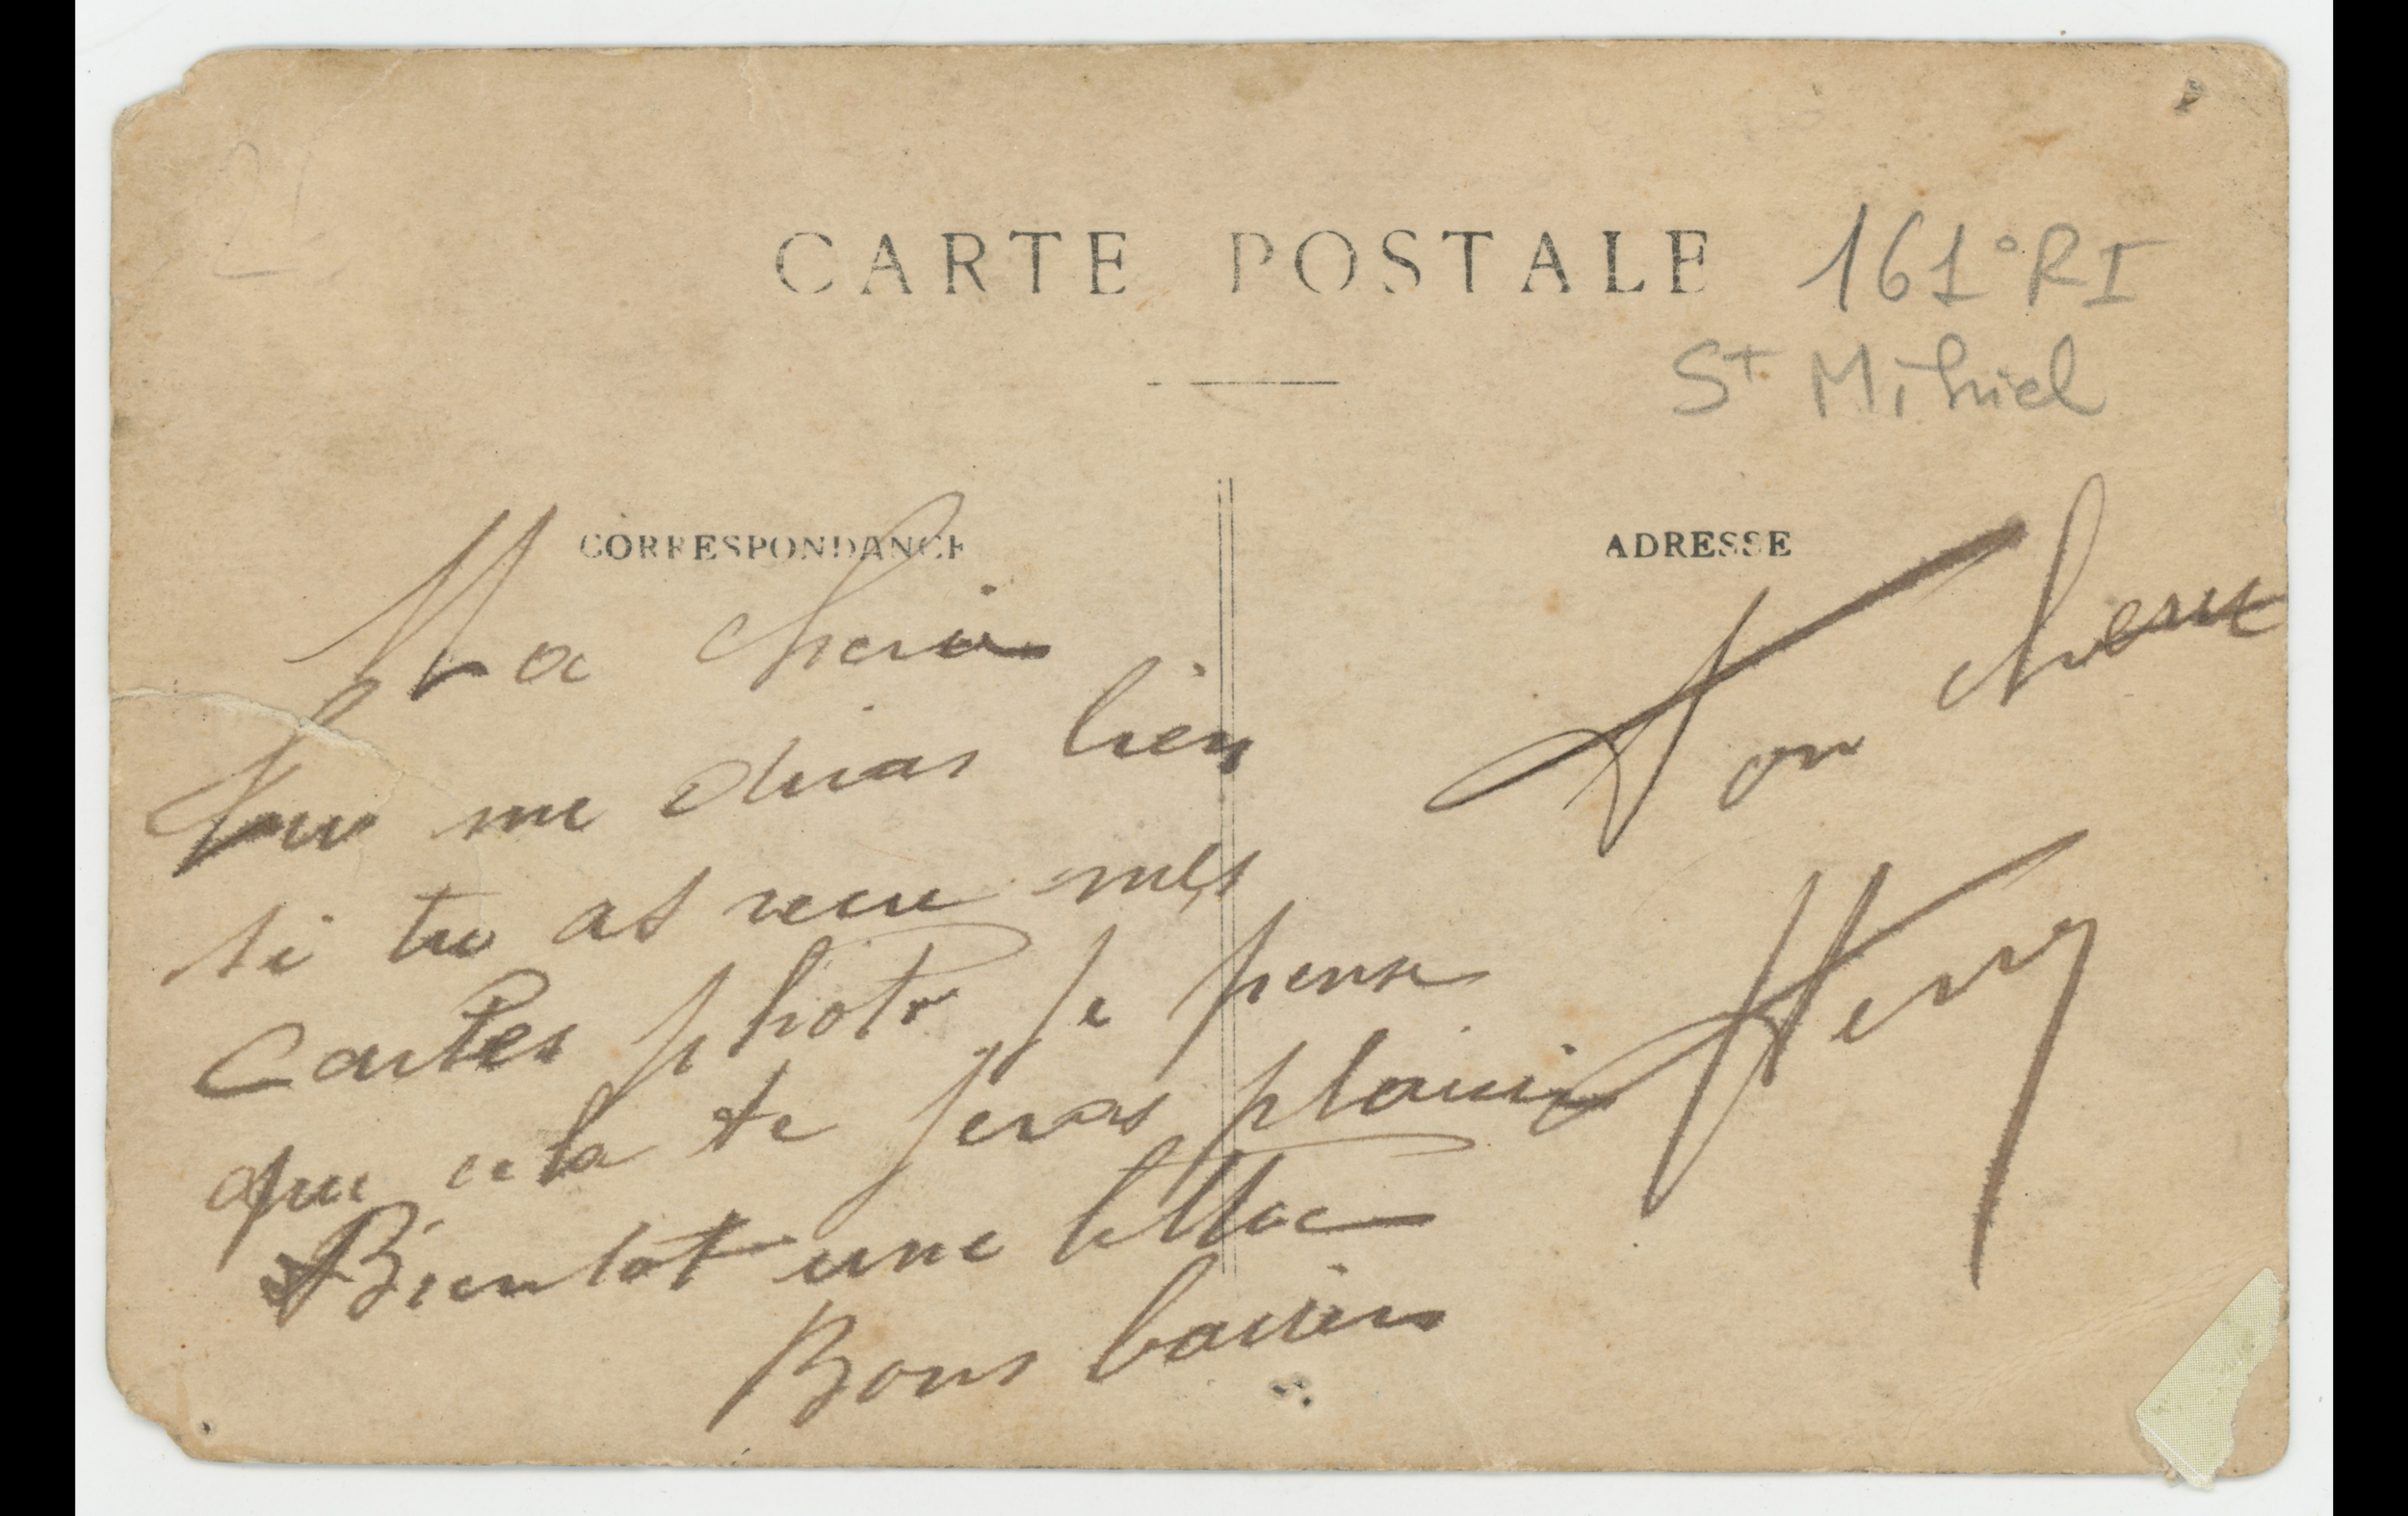 CARTE POSTALE
161° RI
St Mihiel
CORRESPONDANCE
ADRESSE
Ma cherie
Tu me diras bien
si tu as recu mes
Cartes photo je pense
que cela te feras plaisir
Bientot une lettre
Bons baisers
Ton cheri
Henry